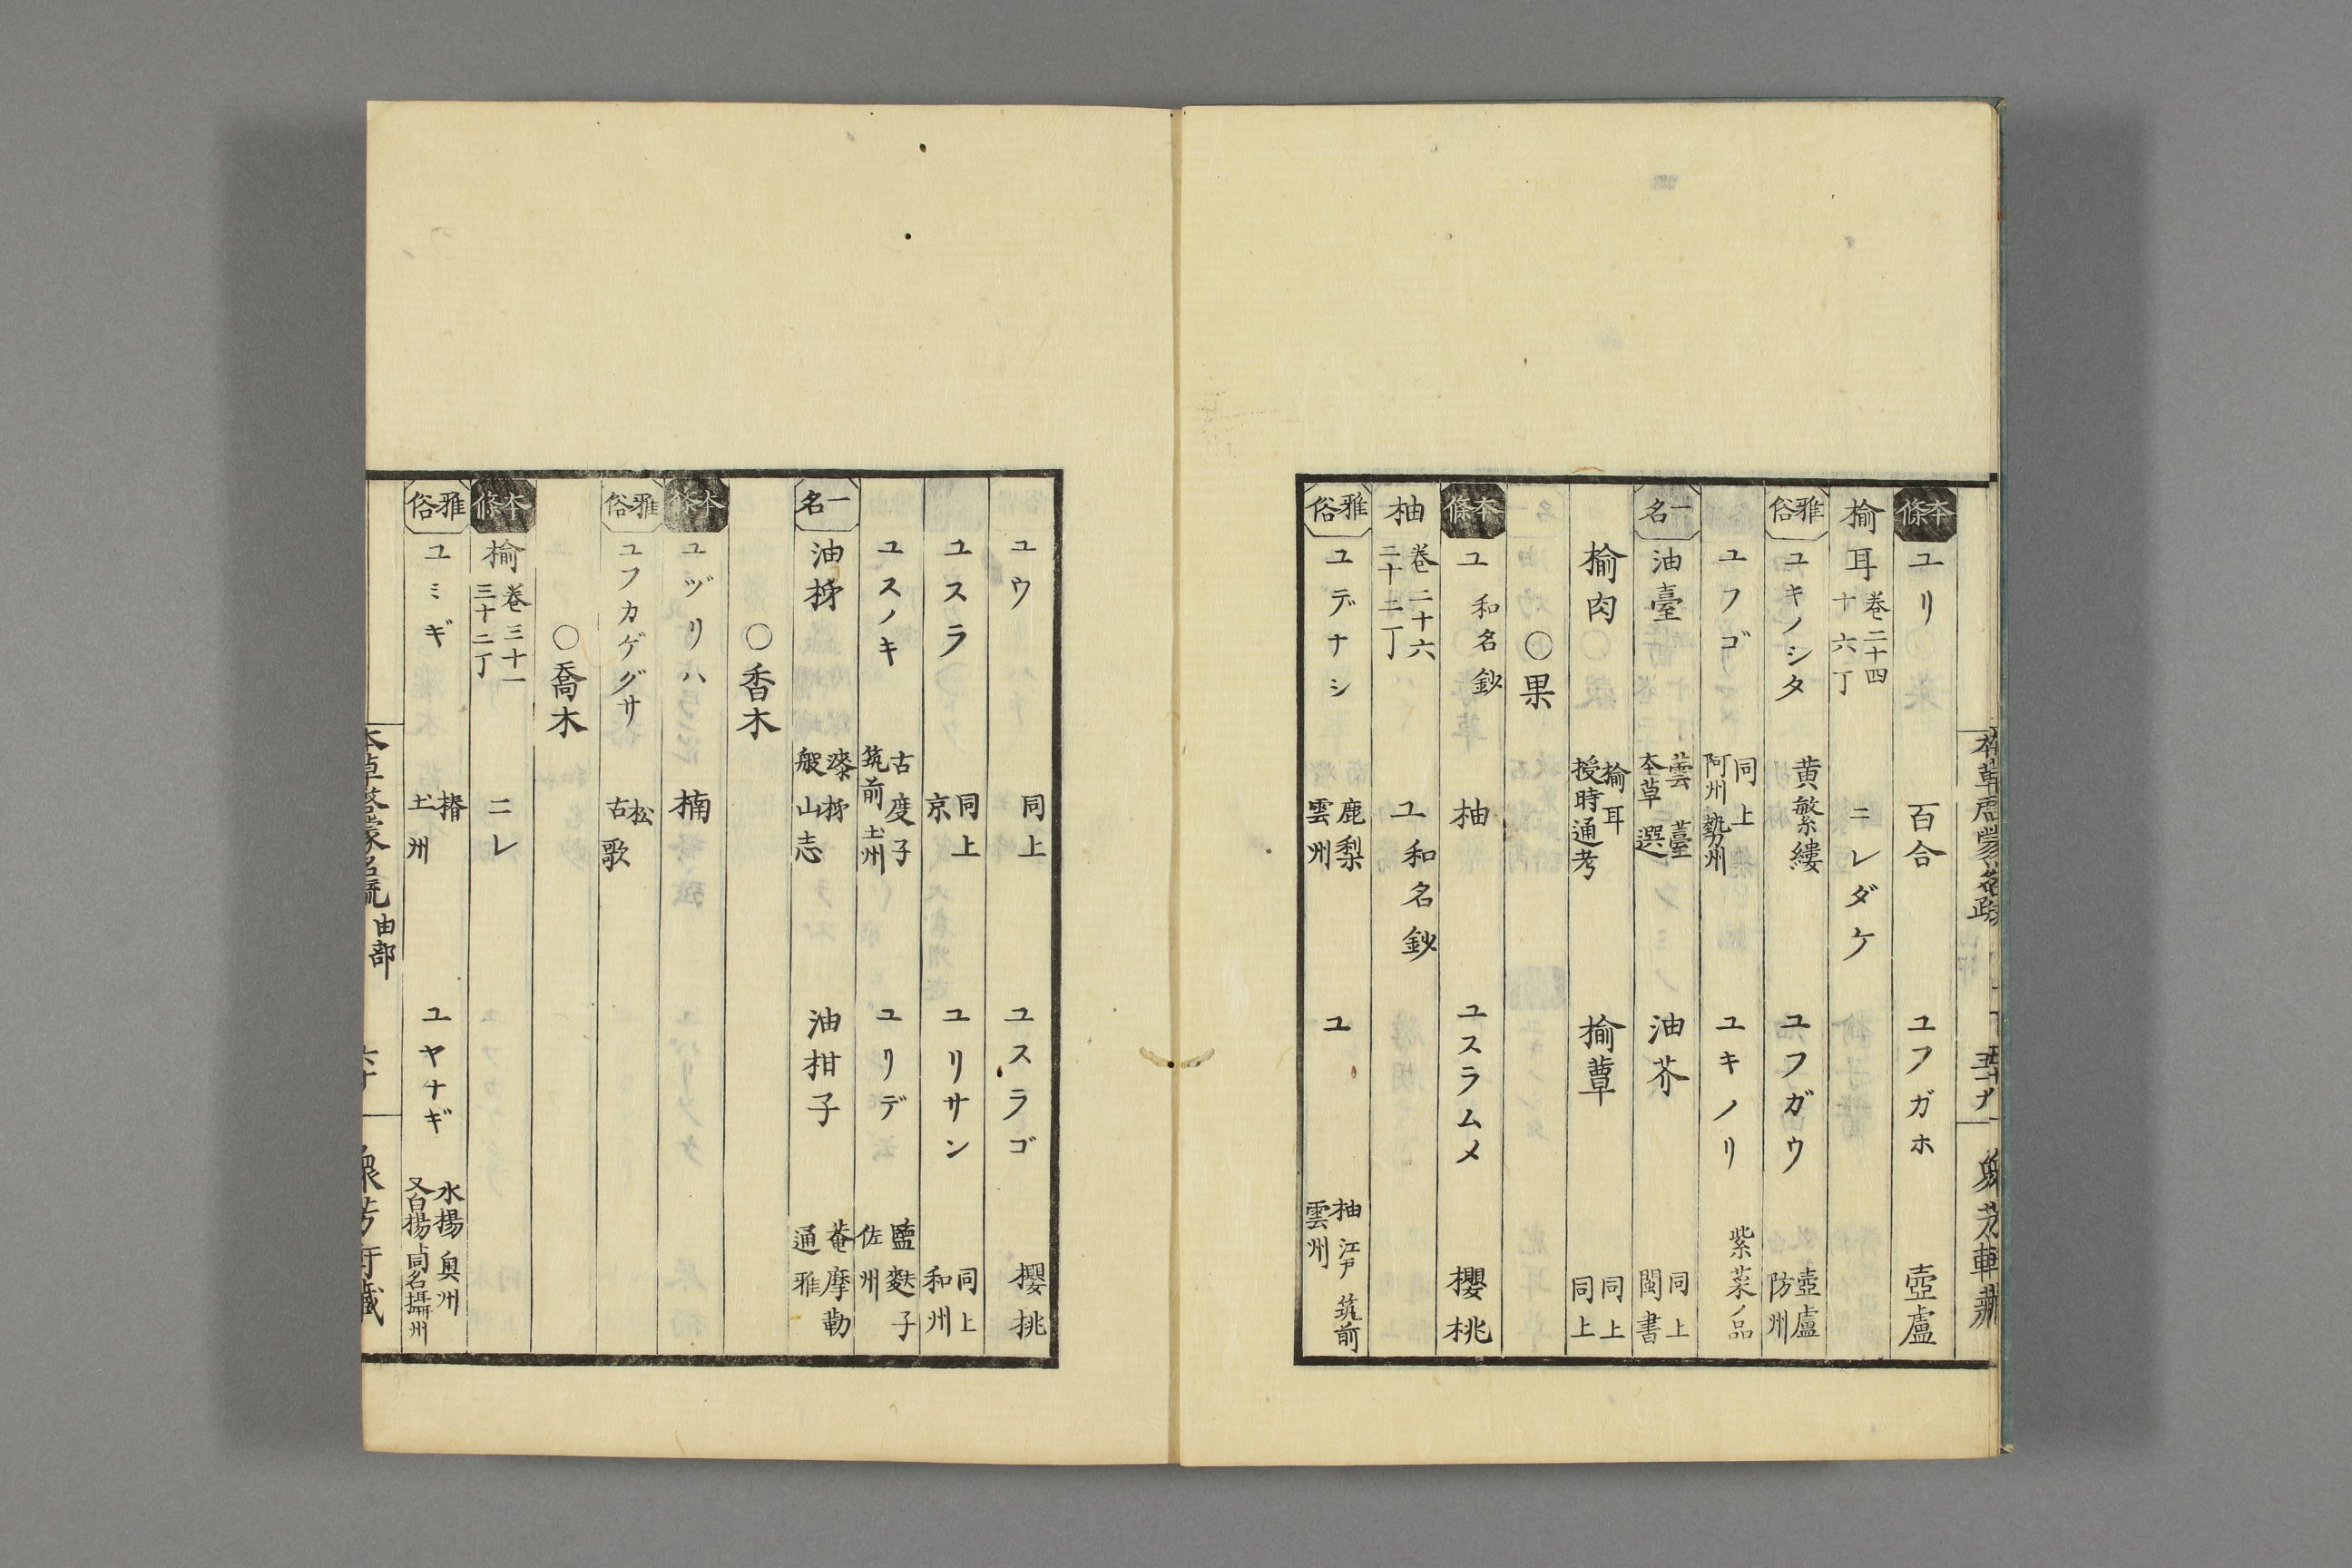 本條 ユリ 百合 ユフガホ 壺盧
楡耳 巻二十四 十六丁 ニレダケ
雅俗 ユキノシタ 黄繁縷 ユフガウ 壺盧 防州
ユフゴ 同上 阿州 勢州 ユキノリ 紫菜ノ品
一名 油臺 蕓薹 本草選 油芥 同上 閩書
楡肉 楡耳 授時通考 楡蕈 同上 同上
○果
本條 ユ 和名鈔 柚 ユスラムメ 櫻桃
柚 巻二十六 二十二丁 ユ 和名鈔
雅俗 ユデナシ 鹿梨 雲州 ユ 柚 江戸 筑前 雲州
ユウ 同上 ユスラゴ 櫻桃
ユスラ 同上 京 ユリサン 同上 和州
ユスノキ 古度子 筑前 土州 ユリデ 鹽麩子 佐州
一名 油柹 漆柹 般山志 油柑子 菴摩勒 通雅
○香木
本條 ユヅリハ 楠
雅俗 ユフカゲグサ 松 古歌
○喬木
本條 楡 巻三十一 三十二丁 ニレ
雅俗 ユミギ 㯃 土州 ユヤナギ 水楊 奥州 又白楊 同名 攝州
本草啓蒙名疏 由部 六十